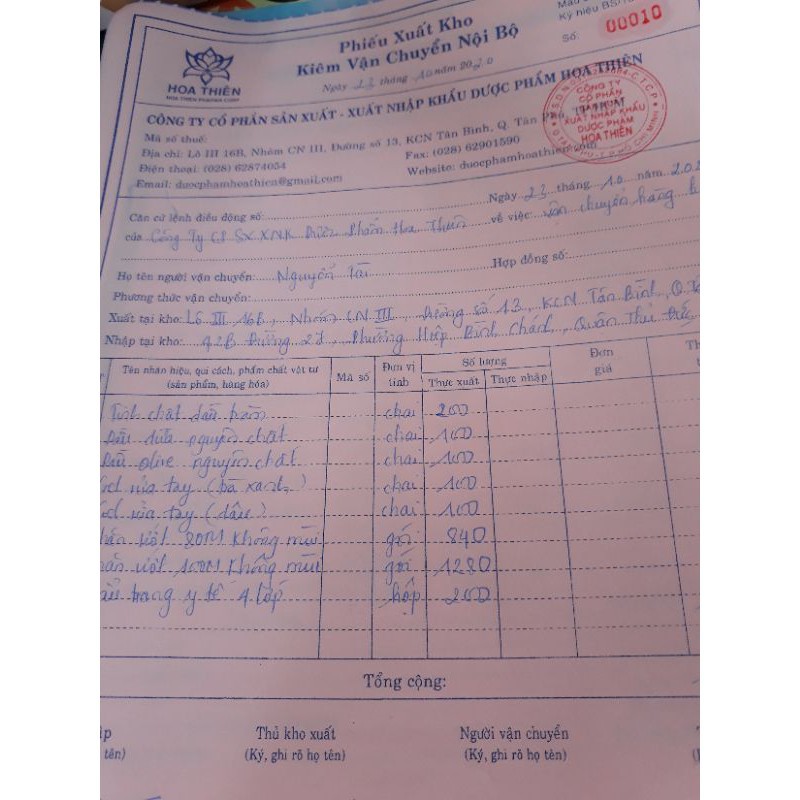 Mẫu
Phiếu Xuất Kho
Ký hiệu BS/
Kiêm Vận Chuyển Nội Bộ
Số: 00010
Ngày 23 tháng 10 năm 2020
HOA THIÊN
HOA THIEN PHARMA CORP
CÔNG TY CỔ PHẦN SẢN XUẤT - XUẤT NHẬP KHẨU DƯỢC PHẨM HOA THIÊN
CÔNG TY
CỔ PHẦN
SẢN XUẤT
XUẤT NHẬP KHẨU
DƯỢC PHẨM
HOA THIÊN
Mã số thuế:
Địa chỉ: Lô III 16B, Nhóm CN III, Đường số 13, KCN Tân Bình, Q. Tân Phú,
Điện thoại: (028) 62874034 Fax: (028) 62901590
Email: duocphamhoathien@gmail.com Website: duocphamhoathien.com
Căn cứ lệnh điều động số: Ngày 23 tháng 10 năm 202
của Công Ty CP SX XNK Dược Phẩm Hoa Thiên về việc vận chuyển hàng
Họ tên người vận chuyển: Nguyễn Tài Hợp đồng số:
Phương thức vận chuyển:
Xuất tại kho: Lô III 16B, Nhóm CN III, Đường số 13, KCN Tân Bình, Q.
Nhập tại kho: 42B Đường 22, Phường Hiệp Bình Chánh, Quận Thủ Đức
Tên nhãn hiệu, qui cách, phẩm chất vật tư (sản phẩm, hàng hóa) Mã số Đơn vị tính Số lượng Thực xuất Thực nhập Đơn giá Th
Tinh chất dầu tràm chai 200
Dầu dừa nguyên chất chai 100
Dầu olive nguyên chất chai 100
rửa tay (trà xanh) chai 100
rửa tay (dâu) chai 100
ướt 80M không mùi gói 840
ướt 100M không mùi gói 1280
trang y tế 4 lớp hộp 200
Tổng cộng:
ập Thủ kho xuất Người vận chuyển
tên) (Ký, ghi rõ họ tên) (Ký, ghi rõ họ tên)